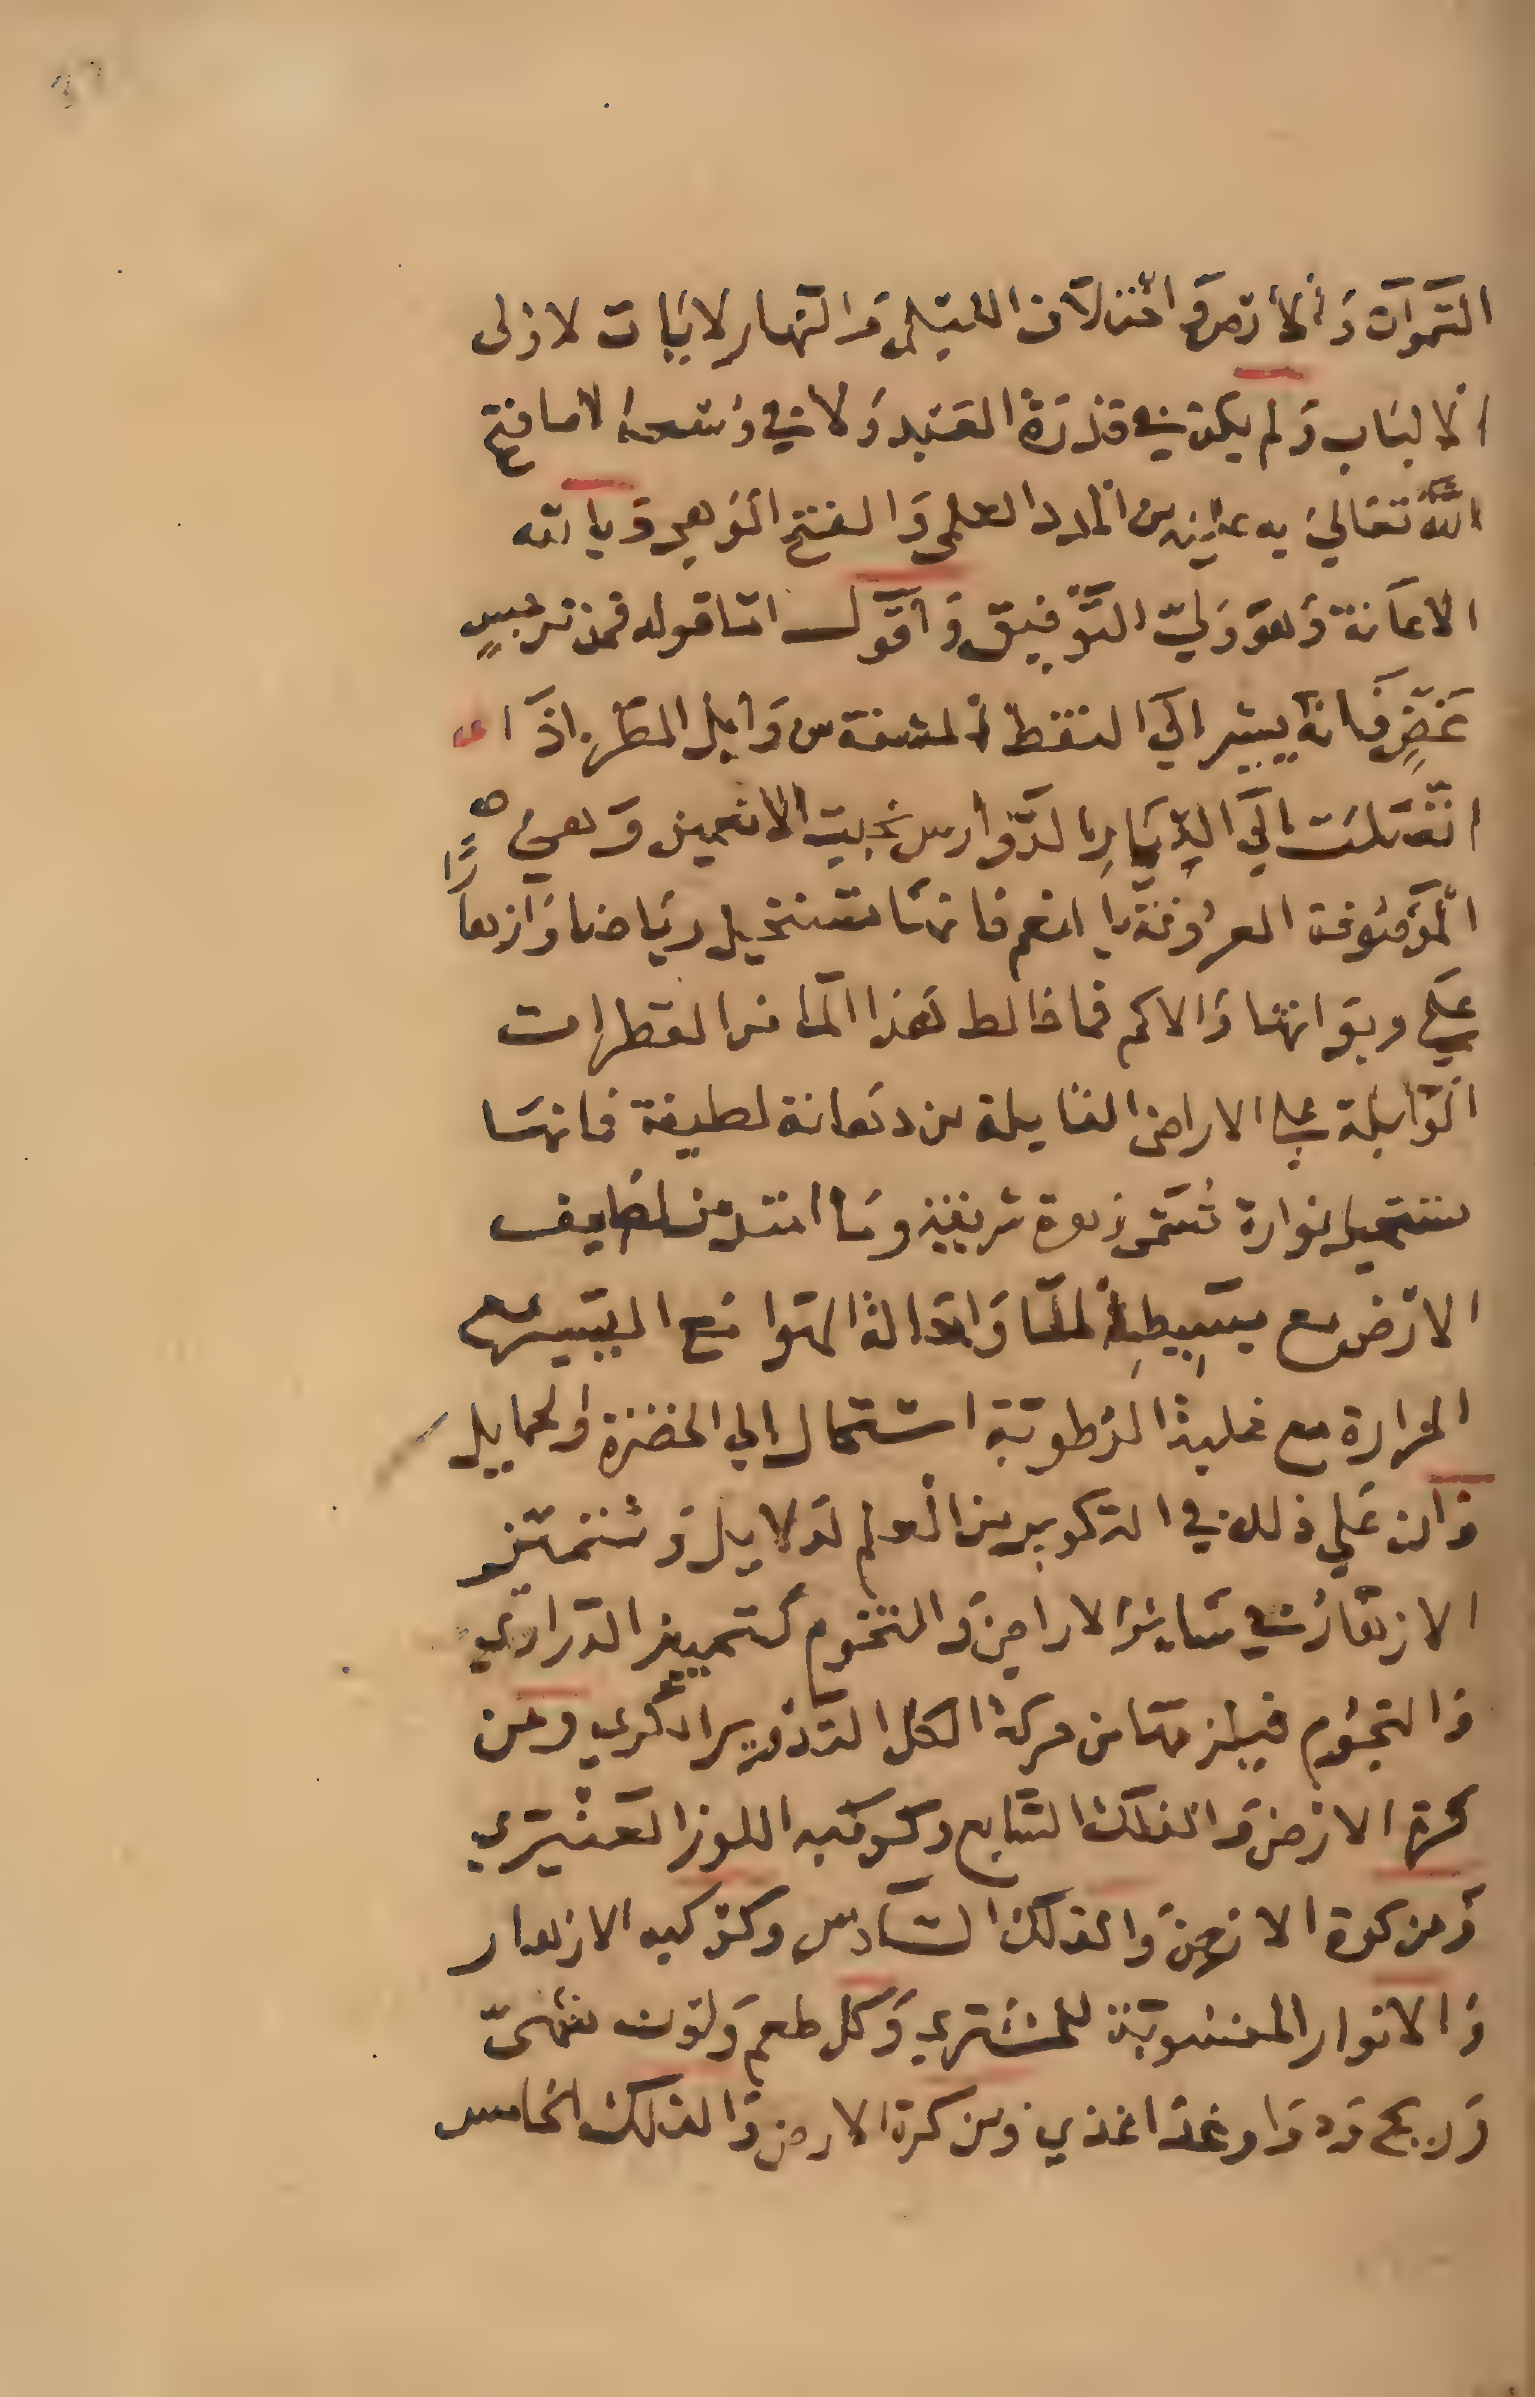 السَّموَات وَالأرض وَاختلاف الليل وَالنهار لايَات لاولى
الالبَاب وَلم يكن في قدرَة العَبد وَلا في وُسْعه الا ما فتح
الله تعَالى به عليه من المدد العلمى وَالفتح الوَهبى وَبالله
الاعَانة وَهوَ وَليّ التَّوفيق وَأقول امّا قوله فمن نرجسٍ
غَضٍّ فَانه يشير الى النقط المشفة من وَابل المطر اذا
انتقلت الى الديَار الدَّوارس بحيث الانعمين وَهى
الموصُوفة المعرُوفة بانعم فانهَا تستحيل ريَاضا وَازهارًا
على ربواتهَا وَالاكم فما خالط هَذا المَا من القطرات
الوَابلة على الاراضى القابلة من دهانة لطيفة فانهَا
تستحيل نوارة تُثمر زهرة شريفة ومَا امتد من لطَايف
الارَض مع بَسيط المَا وَاحَالة الهَوا مَع اليسير من
الحرارة مع غلبة الرطوبَة استحَال الى الخضرَة والحمايل
وَان عَلى ذلك في التكوير من العلم لدَلايل وَتتميّز
الازهَار في سَاير الاراضى وَالتخوم كتمييز الدَراري
وَالنجُوم فيلزمهَا من حركة الكل التدوير الدكوري ومن
كرة الارض وَالفلك السَّابع وكوكبه اللوز العَنبري
وَمن كرة الارض وَالفلك السَّادس وكوكبه الازهار
وَالانوار المنسُوبَة للمشتري وَكل طعم وَلون شهىّ
وَريح وَدوَا وغذا غذى ومن كرة الارض وَالفلك الخامس